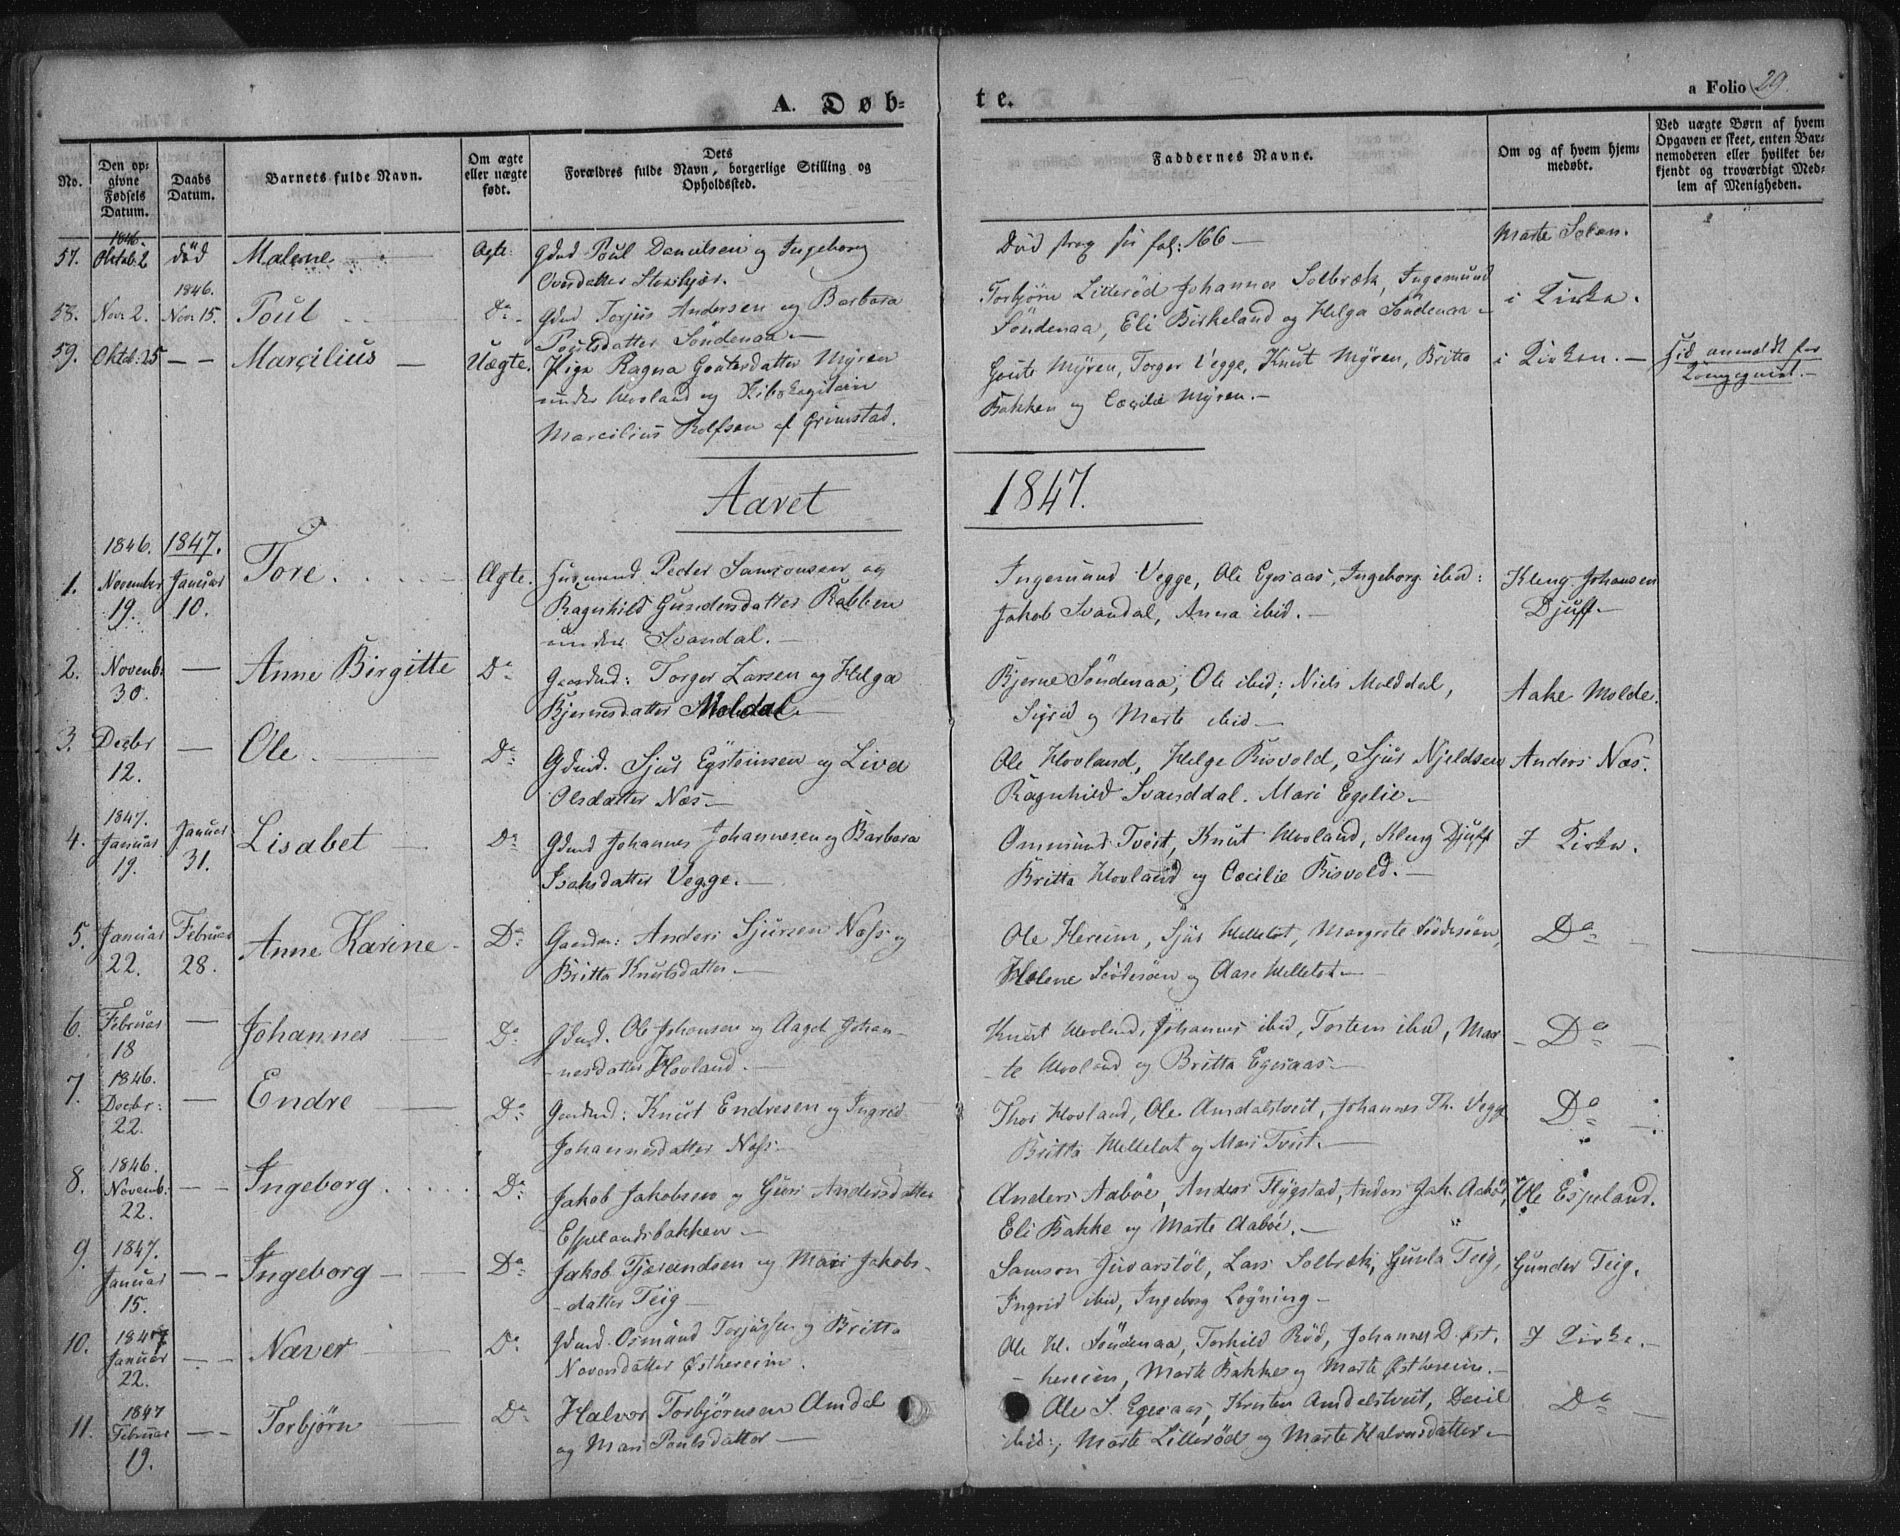 A. Døb-
te.
a Folio 29.
No.
Den op-
givne
Fødsels
Datum.
Daabs
Datum.
Barnets fulde Navn.
Om ægte
eller uægte
født.
Dets
Forældres fulde Navn, borgerlige Stilling og
Opholdssted.
Faddernes Navne.
Om og af hvem hjem-
medøbt.
Ved uægte Børn af hvem
Opgaven er skeet, enten Bar-
nemoderen eller hvilket be-
kjendt og troværdigt Med-
lem af Menigheden.
57.
1846.
Oktob. 2
død
Malene
Ægte.
Gdmd Poul Danielsen og Ingeborg
Død strax fol: 166 —
Marte
58.
Nov. 2.
1846.
Nov. 15.
Poul
Do
Gdmd Torjus Andersen og Barbara
Poulsdatter Söndenaa. —
Torbjörn Lillerød Johannes Solbræk, Ingemund
Söndenaa, Eli Birkeland og Helga Söndenaa —
i Kirke.
59.
Oktob: 25
— —
Marcilius —
Uægte.
Pige Ragna Goutesdatter Myren
under Hovland og
Marcilius Rolfsen af Grimstad.
Goute Myren, Torger Vegge, Knut Myren, Britta
Bakken og Cecilie Myren. —
i Kirken. —
anmeldt for
Aaret
1847.
1.
1846.
November
19.
1847.
Januar
10.
Tore.
Ægte.
Husmand Peder Samsonsen og
Ragnhild Gundersdatter Rabben
under Svandal. —
Ingemund Vegge, Ole Egesaas, Ingeborg ibid:
Jakob Svandal, Anna ibid. —
Kleng Johansen
Djuff. —
2.
Novemb.
30.
—
Anne Birgitte
Do
Gaardmd: Torger Larsen og Helga
Bjernesdatter Moldal. —
Bjerne Söndenaa, Ole ibid; Niels Molddal,
Sigrid og Marte ibid —
Aake Molde.
3.
Decbr
12.
—
Ole.
Do
Gdmd. Sjur Egsteinsen og Liva
Olsdatter Næs —
Ole Hovland, Helge Risvold, Sjur Njeldsen
Ragnhild Svanddal. Mari Egelie —
Anders Næs.
4.
1847.
Januar
19.
Januar
31.
Lisabet —
Do
Gdmd Johannes Johannesen og Barbara
Isaksdatter Vegge. —
Ommund Tveit, Knut Hovland, Kleng Djuff
Britta Hovland og Cæcilie Risvold. —
I Kirke.
5.
Januar
22.
Februar
28.
Anne Karine
Do
Gaardm: Anders Sjursen Næss og
Britta Knutsdatter —
Ole Hereim, Sjur Helletvt, Margrete
Malene og Aase Helletvt —
Do
6.
Februar
18
—
Johannes
Do
Gdmd. Ole Johansen og Aaget Johan-
-nesdatter Hovland. —
Knut Hovland, Johannes ibid, Torsten ibid, Mar-
-te Hovland og Britta Egesaas —
Do
7.
1846.
Decbr:
22.
—
Endre
Do
Gaardmd: Knut Endresen og Ingrid
Johannesdatter Næss —
Thor Hovland, Ole Amdalstveit, Johannes Th. Vegge
Britta Helletvt og Mari Tveit. —
Do
8.
1846.
Novemb.
22.
— —
Ingeborg
Do
Jakob Jakobsen og Guri Andersdatter
Espelandsbakken —
Anders Aabøe, Anders Flygstad, Anders Jak. Aabøe,
Eli Bakke og Marte Aabøe. —
Ole Espeland.
9.
1847.
Januar
15.
— —
Ingeborg
Do
Jakob Tjerandsen og Mari Jakobs-
-datter Teig —
Samson Juvarstöl, Lars Solbræk, Gunla Teig,
Ingrid ibid, Ingeborg Logning —
Gunder Teig.
10.
1847
Januar
22.
— —
Naver
Do
Gdmd. Osmund Torjussen og Britta
Naversdatter Østhereim.
Ole Hl. Söndenaa, Torkild Röd, Johannes D. Øst-
-hereim, Marte Bakke og Marte Østhereim. —
I Kirke. —
11.
1847
Februar
19.
— —
Torbjörn
Do
Halvor Torbjörnsen Amdal
og Mari Poulsdatter —
Ole S. Egesaas, Kristen Amdalstveit, David
ibid:, Marte Lilleröd og Marte Halvorsdatter —
Do